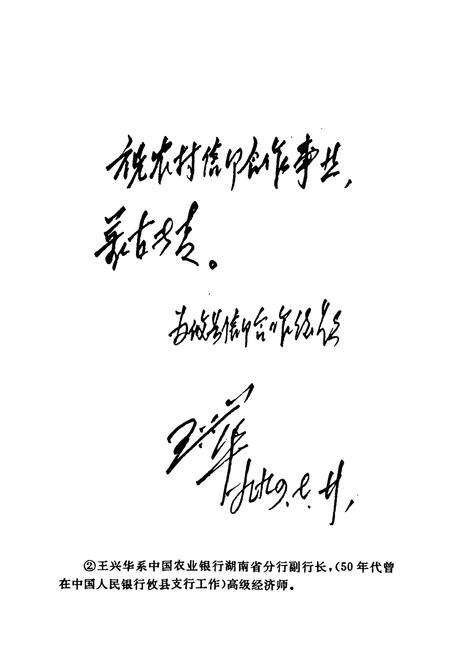 祝农村信用合作事业，
万古长青。
为攸县信用合作社题
王兴华
一九九〇.七.廿，
②王兴华系中国农业银行湖南省分行副行长，（50年代曾
在中国人民银行攸县支行工作）高级经济师。